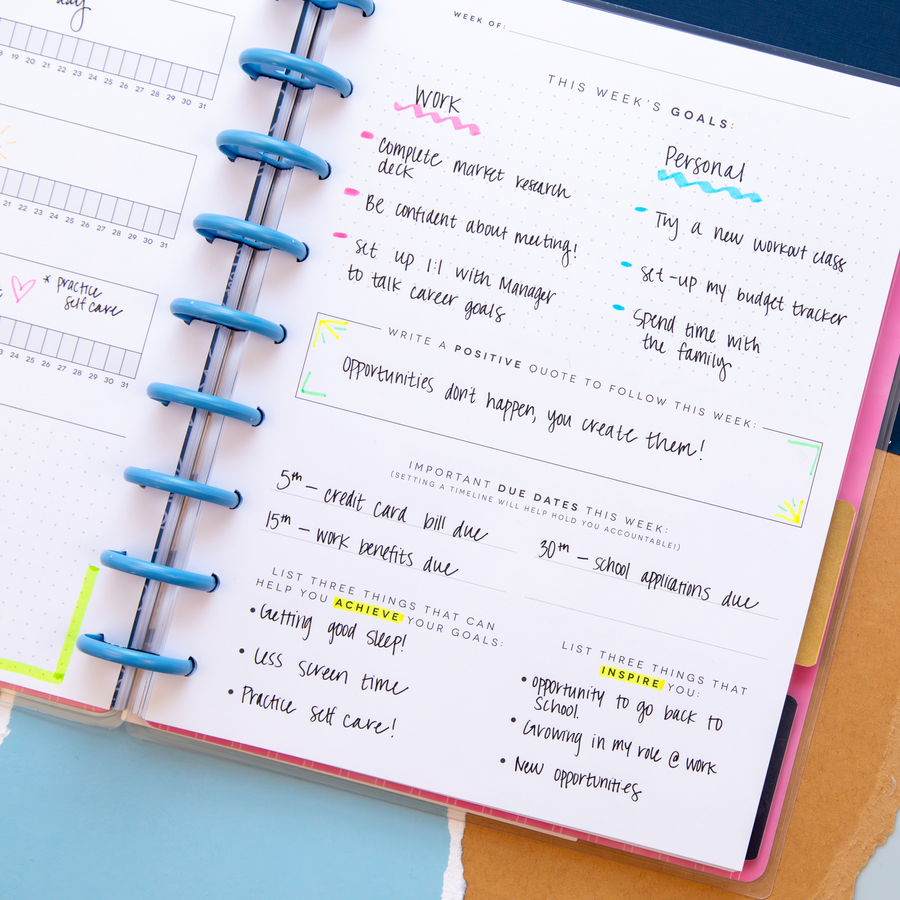 day
18 19 20 21 22 23 24 25 26 27 28 29 30 31
21 22 23 24 25 26 27 28 29 30 31
* practice
self care
23 24 25 26 27 28 29 30 31
WEEK OF:
THIS WEEK'S GOALS:
Work
complete market research
deck
Be confident about meeting!
set up 1:1 with Manager
to talk career goals
Personal
Try a new workout class
set-up my budget tracker
Spend time with
the family
WRITE A POSITIVE QUOTE TO FOLLOW THIS WEEK:
opportunities don't happen, you create them!
IMPORTANT DUE DATES THIS WEEK:
(SETTING A TIMELINE WILL HELP HOLD YOU ACCOUNTABLE!)
5th – credit card bill due
15th – work benefits due
30th – school applications due
LIST THREE THINGS THAT CAN
HELP YOU ACHIEVE YOUR GOALS:
• Getting good sleep!
• Less screen time
• Practice self care!
LIST THREE THINGS THAT
INSPIRE YOU:
• opportunity to go back to
School.
• Growing in my role @ work
• New opportunities